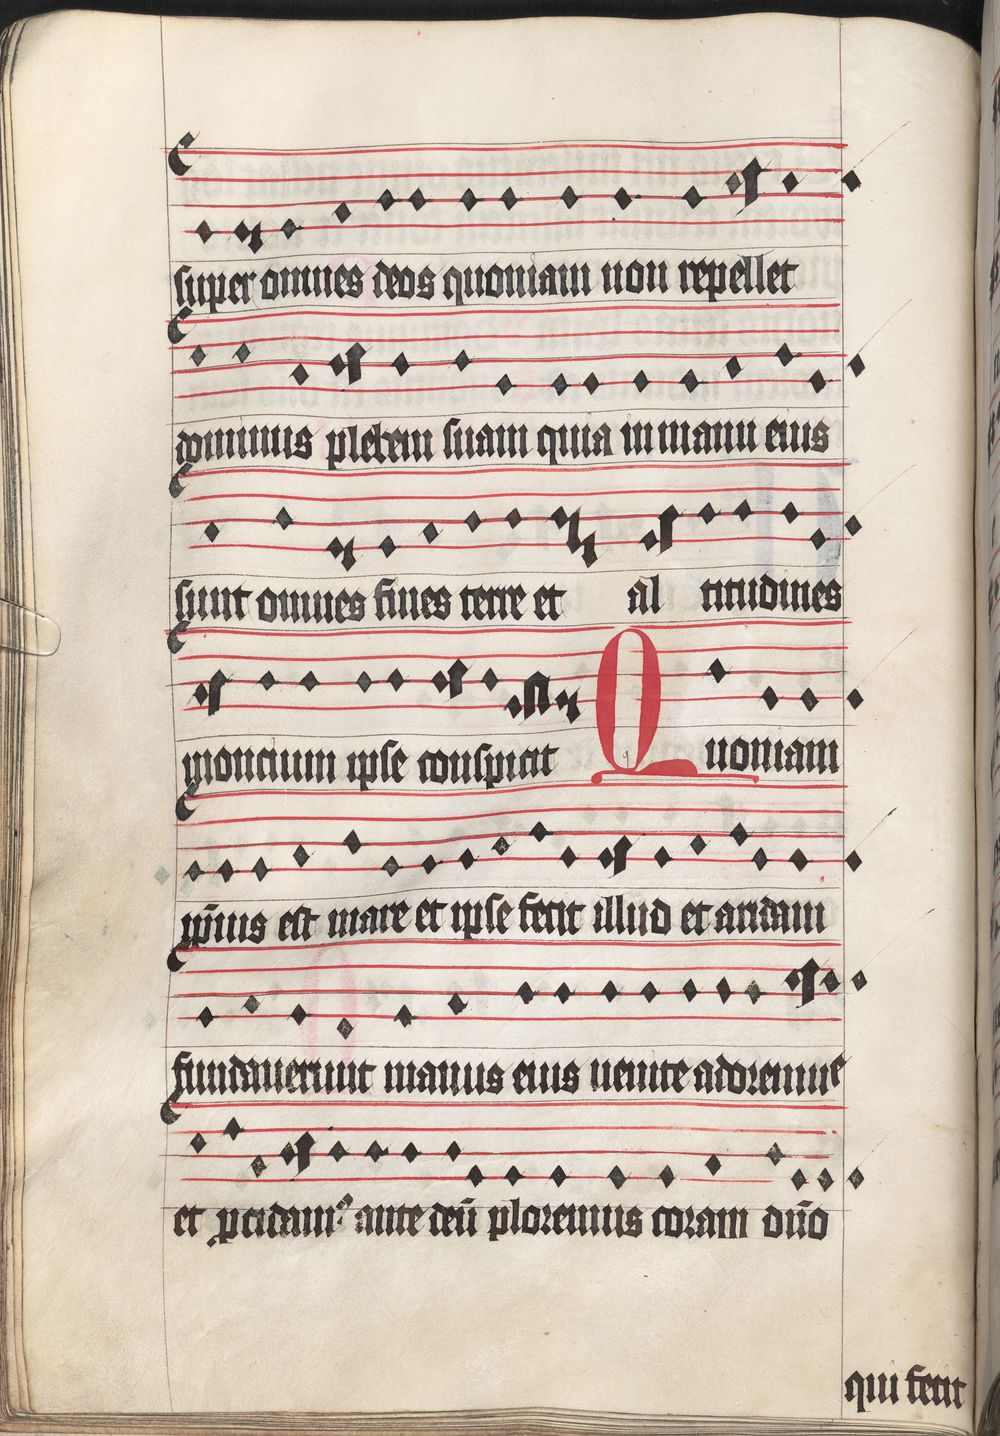 super omnes deos quoniam non repellet
dominus plebem suam quia in manu eius
sunt omnes fines terre et al titudines
moncium ipse conspicit Quoniam
ip̄ius est mare et ipse fecit illud et aridam
fundaverunt manus eius uenite adoremus
et ꝓcidamꝰ ante deū ploremus coram dn̄o
qui fecit